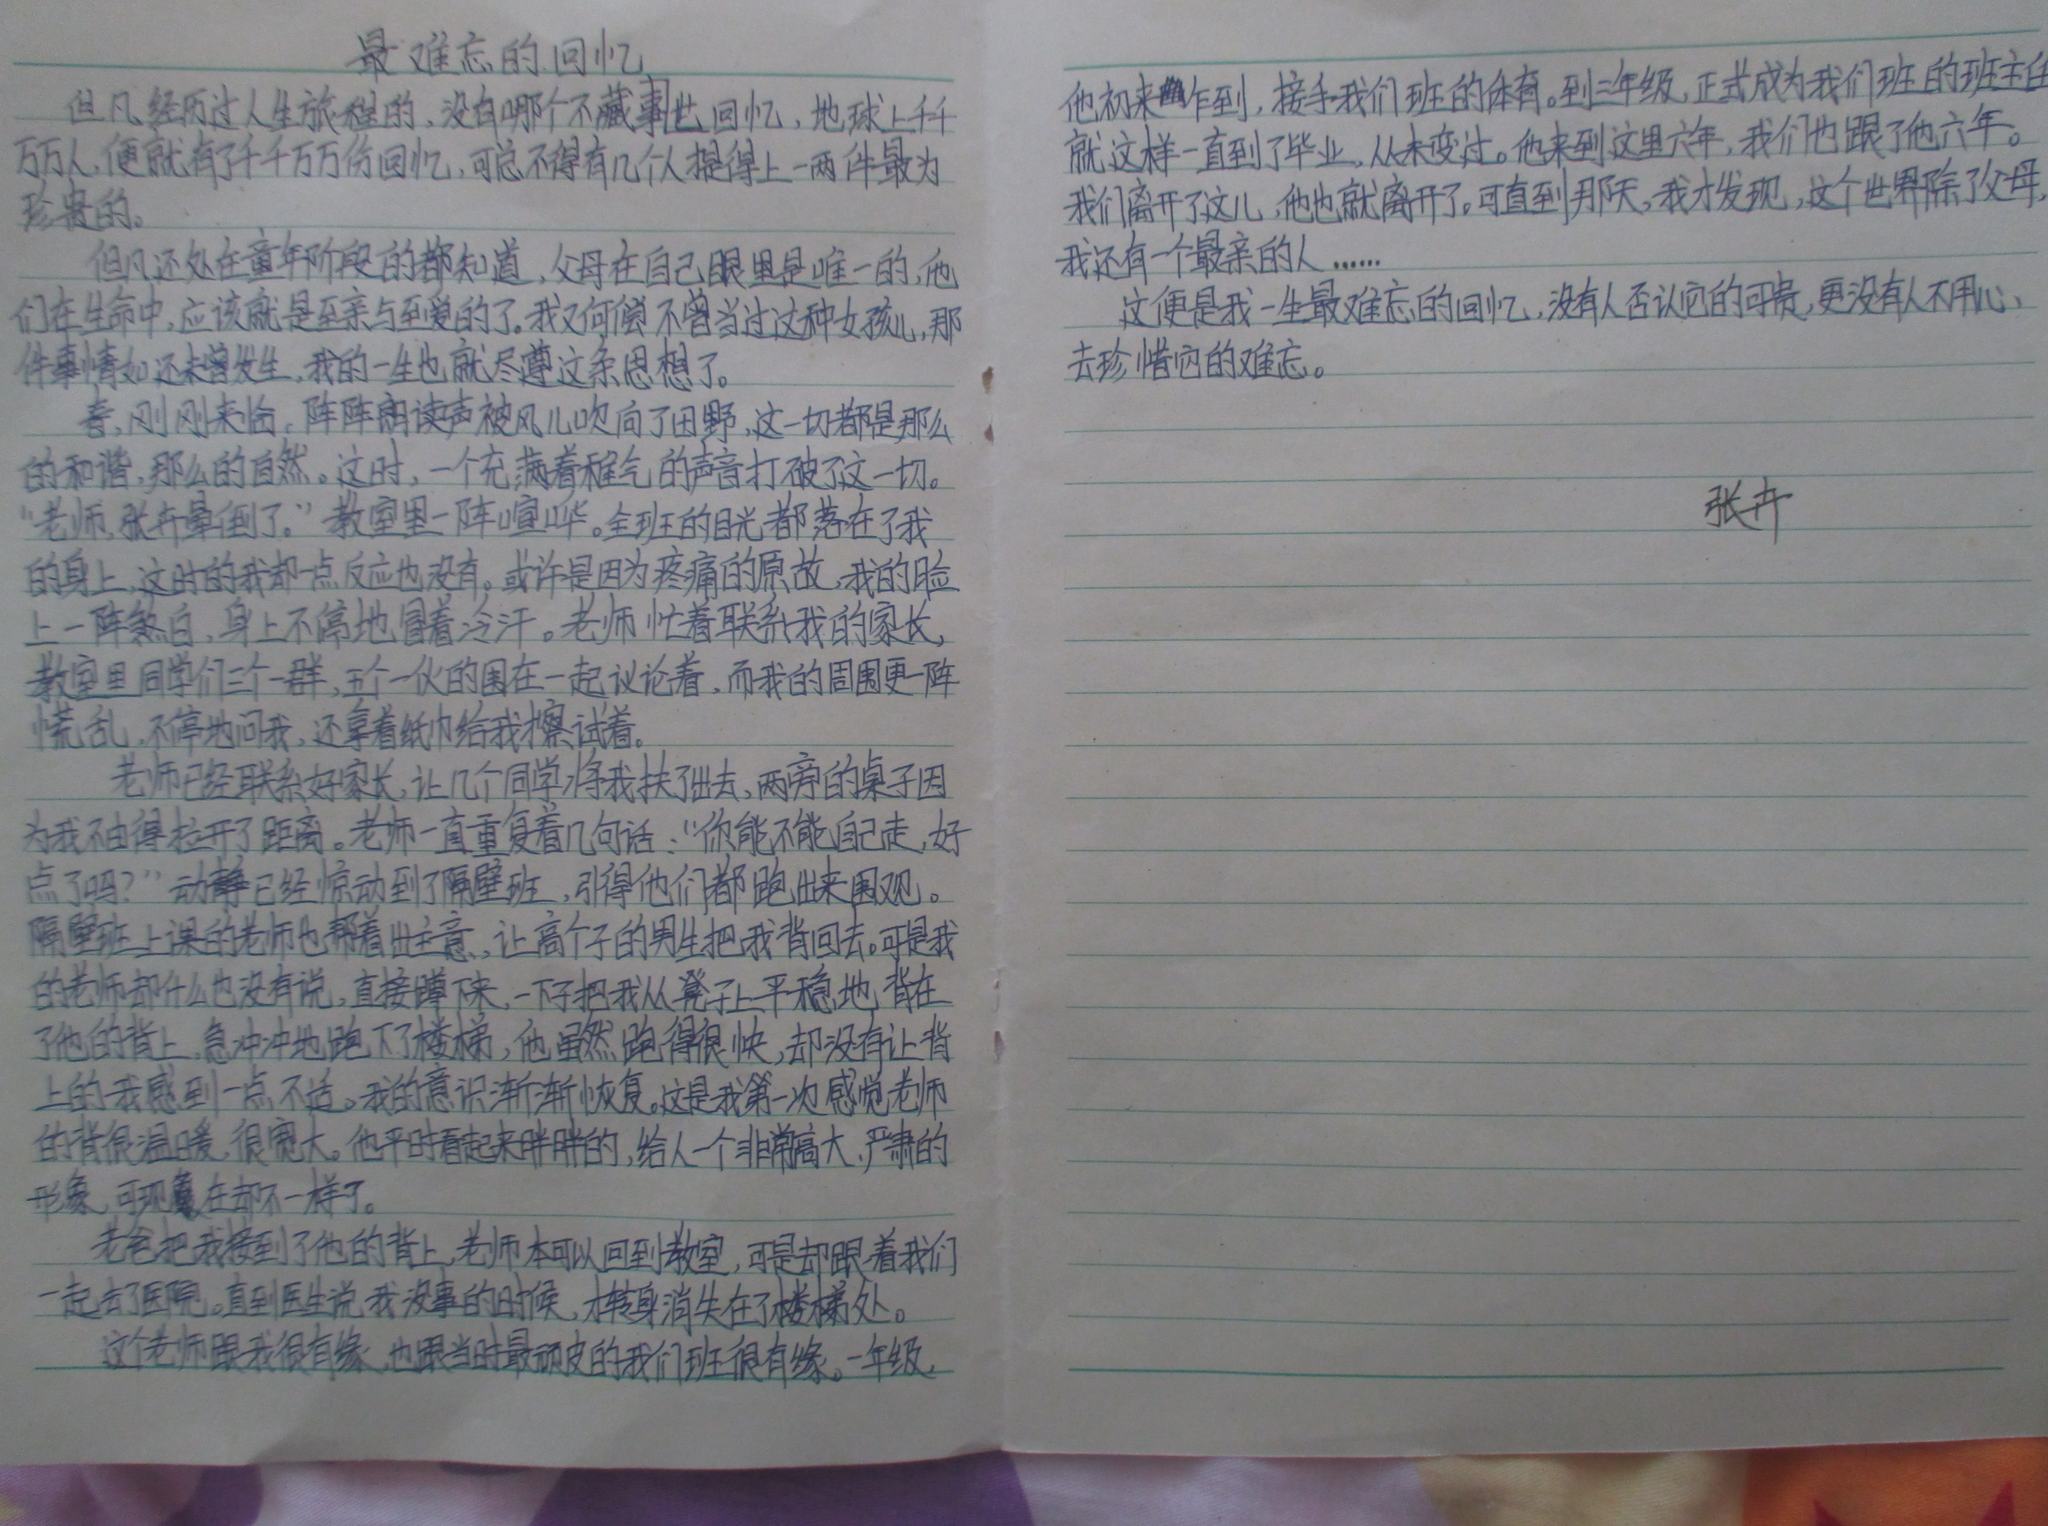 最难忘的回忆
但凡经历过人生旅程的，没有哪个不藏事些回忆，地球上千千
万万人，便就有了千千万万份回忆，可总不得有几个人提得上一两件最为
珍贵的。
但凡还处在童年阶段的都知道，父母在自己眼里是唯一的，他
们在生命中，应该就是至亲与至爱的了。我又何偿不曾当过这种女孩儿，那
件事情如还未曾发生，我的一生也就尽遵这条思想了。
春，刚刚来临，阵阵朗读声被风儿吹向了田野，这一切都是那么
的和谐，那么的自然。这时，一个充满着稚气的声音打破了这一切。
“老师，张卉晕倒了。”教室里一阵喧哗。全班的目光都落在了我
的身上，这时的我却一点反应也没有。或许是因为疼痛的原故，我的脸
上一阵煞白，身上不停地冒着冷汗。老师忙着联系我的家长，
教室里同学们三个一群，五个一伙的围在一起议论着，而我的周围更一阵
慌乱，不停地问我，还拿着纸巾给我擦试着。
老师已经联系好家长，让几个同学将我扶了出去，两旁的桌子因
为我不由得拉开了距离。老师一直重复着几句话：“你能不能自己走，好
点了吗？”动静已经惊动到了隔壁班，引得他们都跑出来围观。
隔壁班上课的老师也帮着出主意，让高个子的男生把我背回去。可是我
的老师却什么也没有说，直接蹲下来，一下子把我从凳子上平稳地背在
了他的背上，急冲冲地跑下了楼梯，他虽然跑得很快，却没有让背
上的我感到一点不适。我的意识渐渐恢复。这是我第一次感觉老师
的背很温暖，很宽大。他平时看起来胖胖的，给人一个非常高大、严肃的
形象，可现在却不一样了。
老爸把我接到了他的背上，老师本可以回到教室，可是却跟着我们
一起去了医院。直到医生说我没事的时候，才转身消失在了楼梯处。
这个老师跟我很有缘，也跟当时最顽皮的我们班很有缘。一年级，
他初来乍到，接手我们班的体育。到三年级，正式成为我们班的班主任
就这样一直到了毕业，从未变过。他来到这里六年，我们也跟了他六年。
我们离开了这儿，他也就离开了。可直到那天，我才发现，这个世界除了父母，
我还有一个最亲的人……
这便是我一生最难忘的回忆，没有人否认它的可贵，更没有人不用心，
去珍惜它的难忘。
张卉